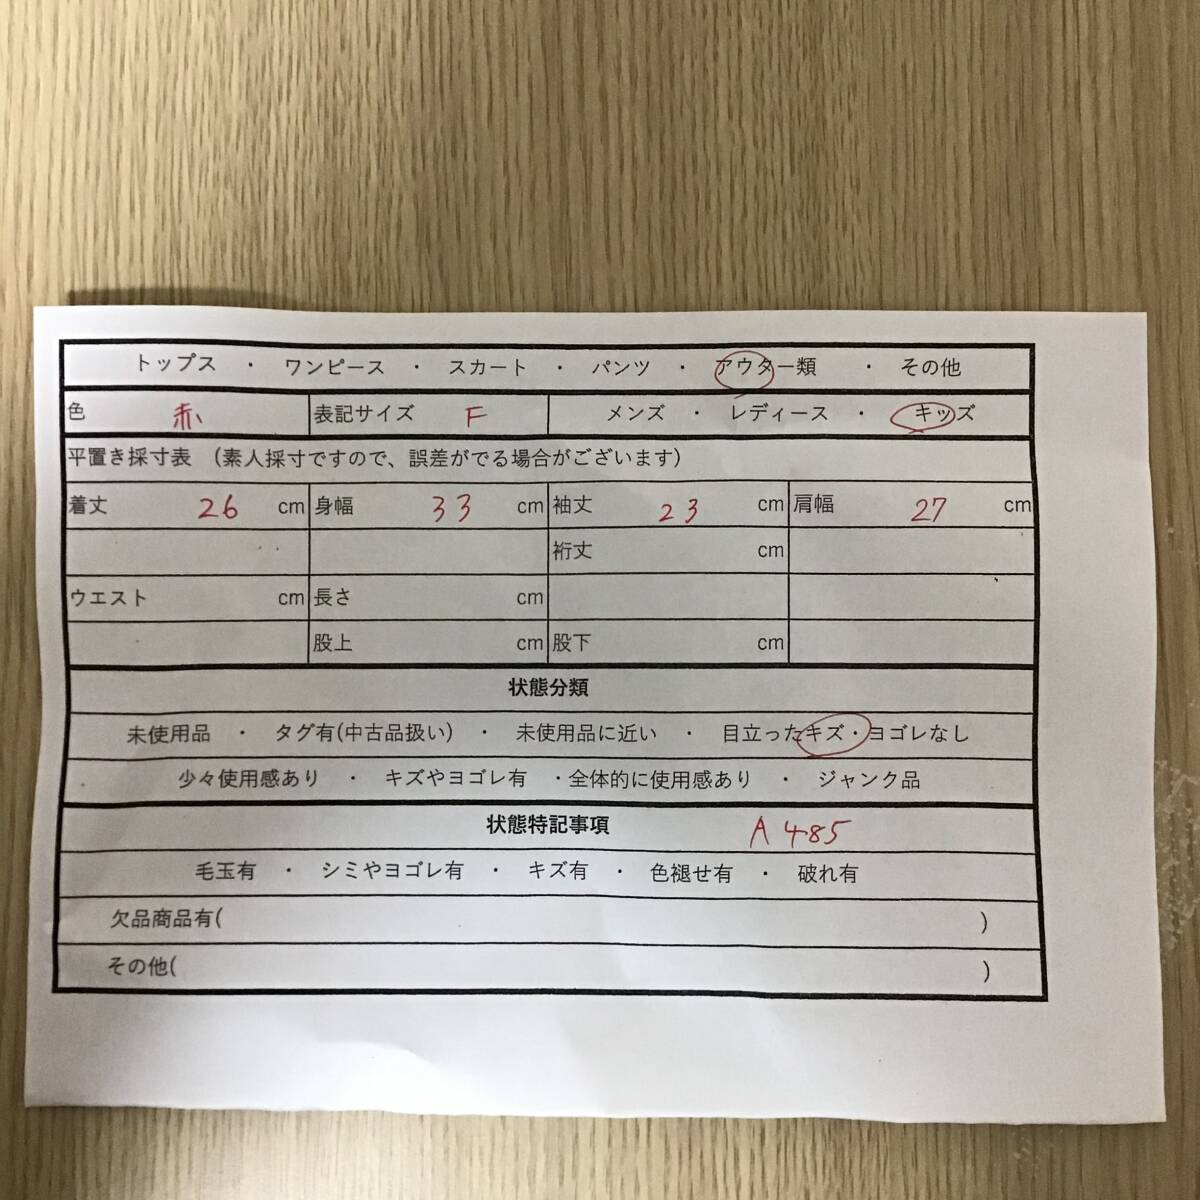 トップス ・ ワンピース ・ スカート ・ パンツ ・ アウター類 ・ その他
色 赤 表記サイズ F メンズ ・ レディース ・ キッズ
平置き採寸表 (素人採寸ですので、誤差がでる場合がございます)
着丈 26 cm 身幅 33 cm 袖丈 23 cm 肩幅 27 cm
裄丈 cm
ウエスト cm 長さ cm
股上 cm 股下 cm
状態分類
未使用品 ・ タグ有(中古品扱い) ・ 未使用品に近い ・ 目立ったキズ・ヨゴレなし
少々使用感あり ・ キズやヨゴレ有 ・全体的に使用感あり ・ ジャンク品
状態特記事項 A485
毛玉有 ・ シミやヨゴレ有 ・ キズ有 ・ 色褪せ有 ・ 破れ有
欠品商品有( )
その他( )